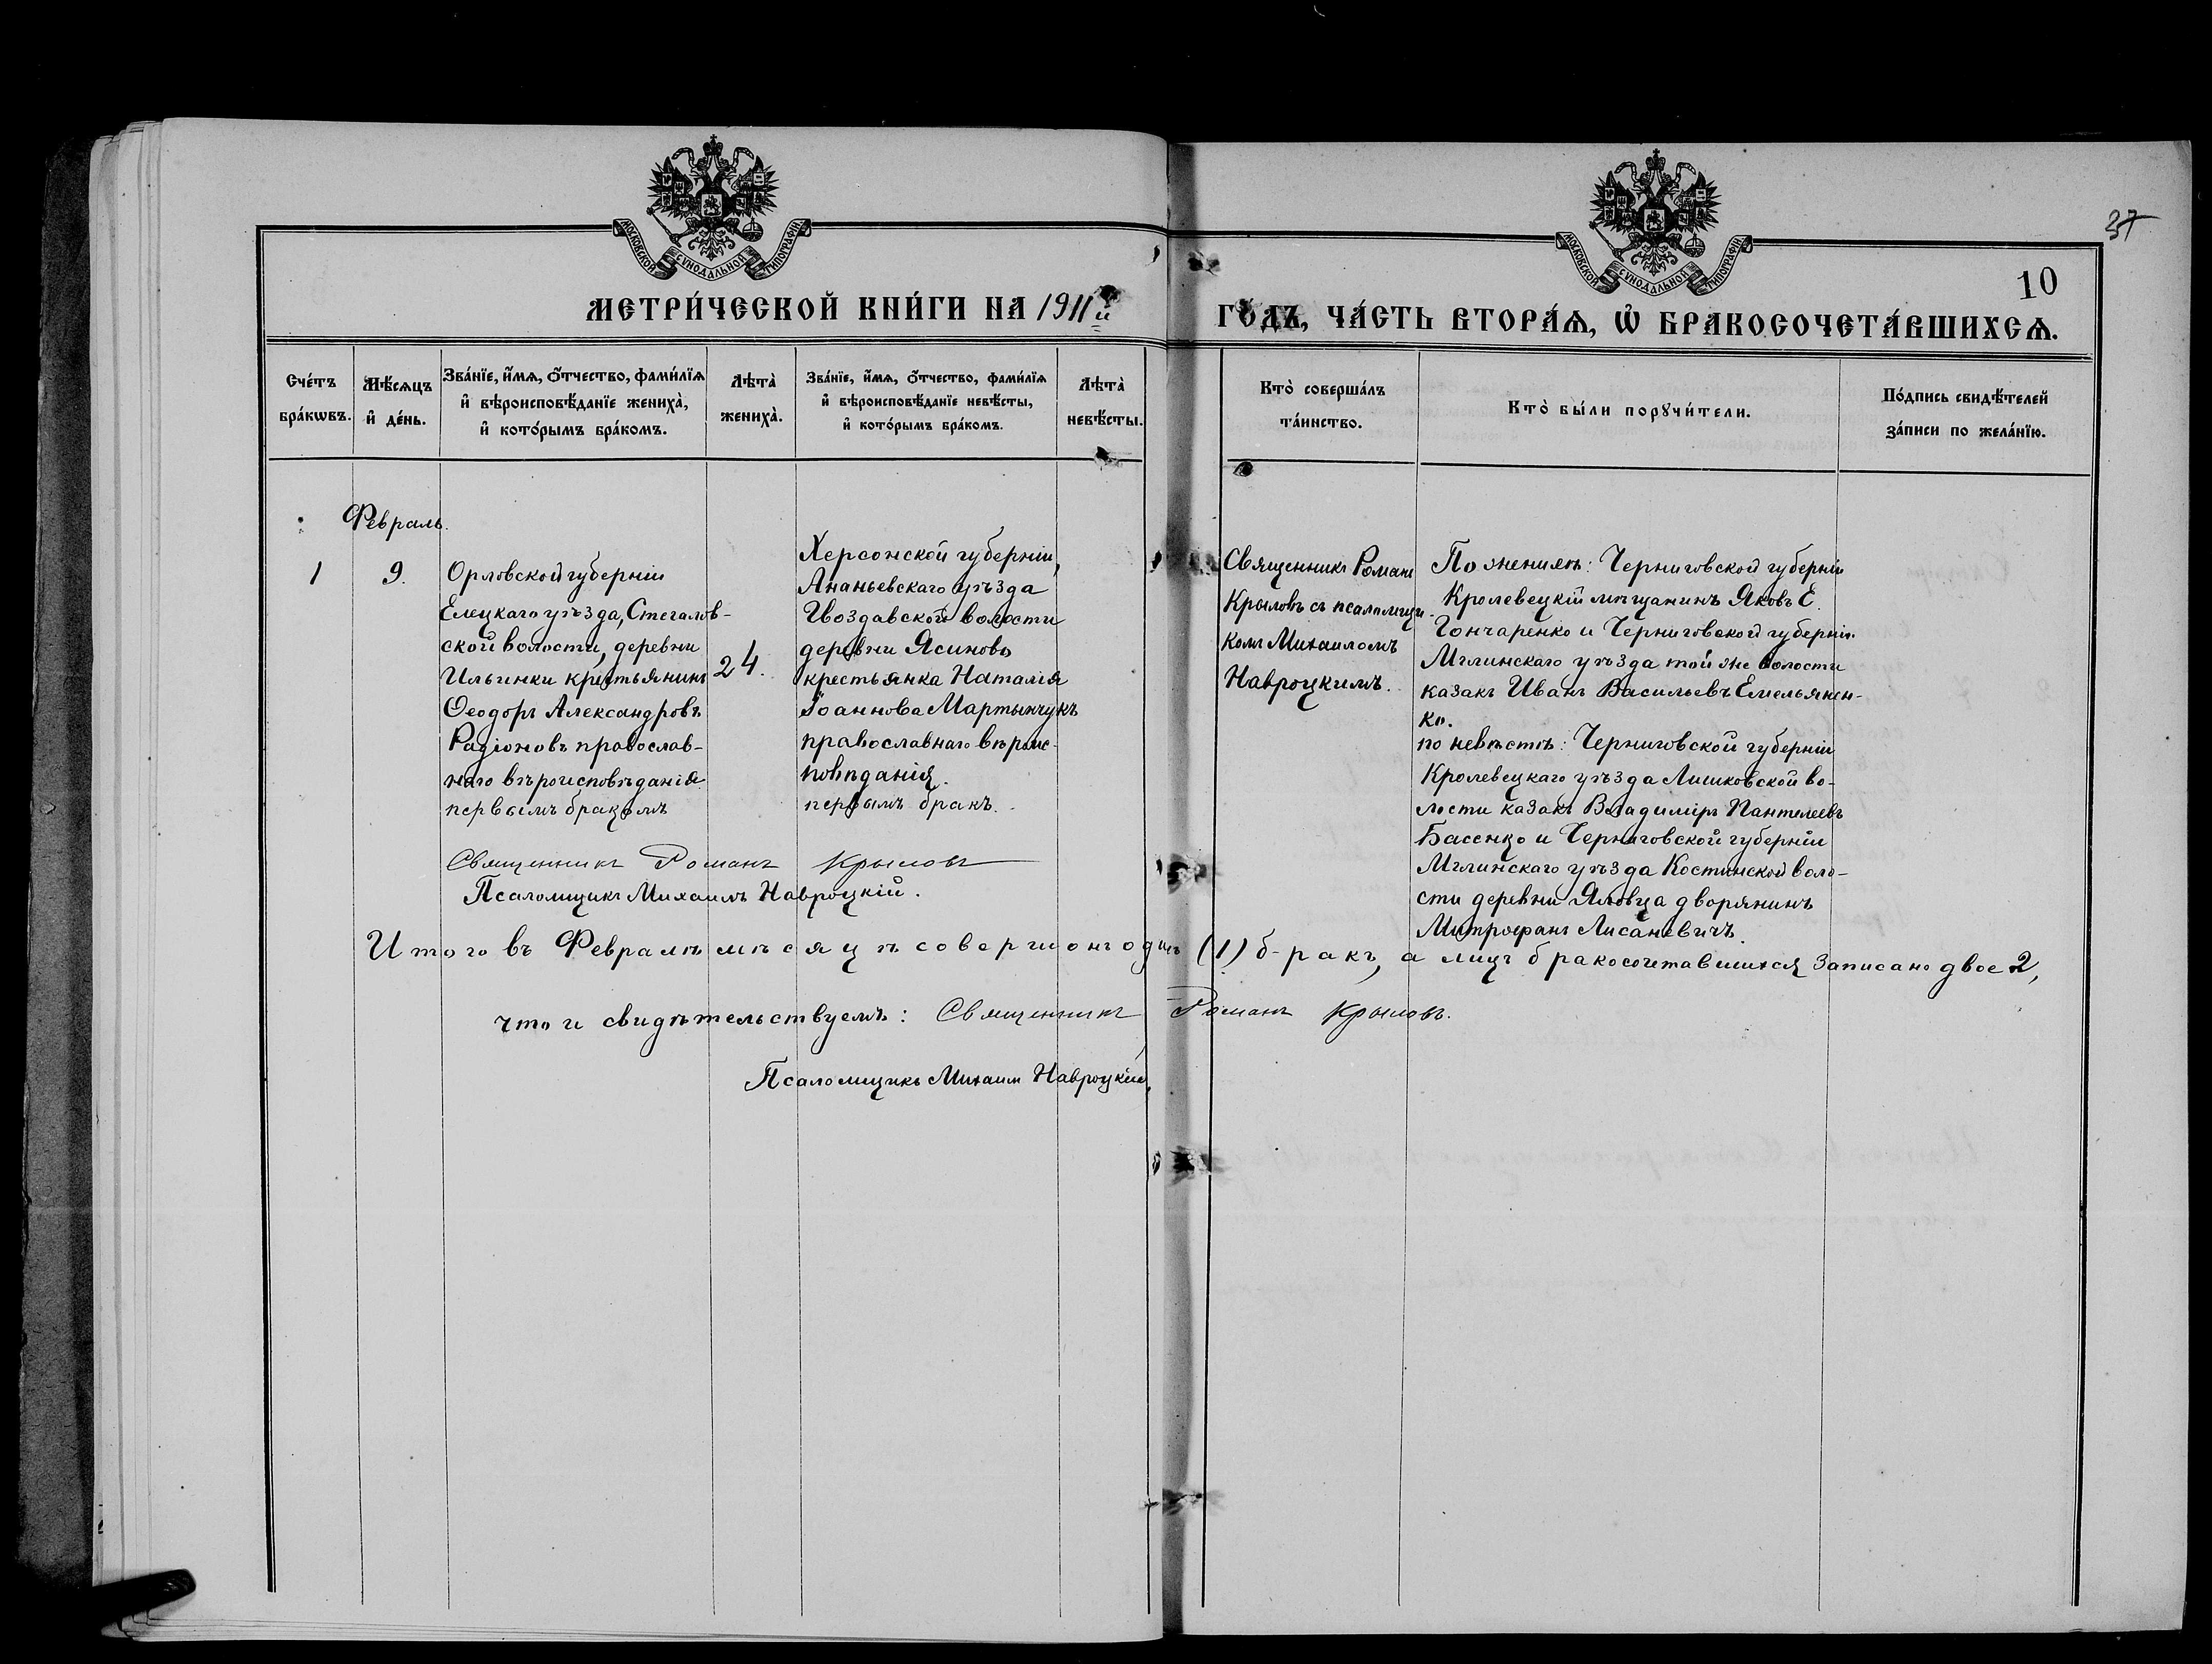 МОСКОВСКОЙ СѴНОДАЛЬНОЙ ТИПОГРАФІИ.
МОСКОВСКОЙ СѴНОДАЛЬНОЙ ТИПОГРАФІИ.
37
10
МЕТРИ́ЧЕСКОЙ КНИ́ГИ НА 1911й ГО́ДЪ, ЧА́СТЬ ВТОРА́Ѧ, Ѽ БРАКОСОЧЕТА́ВШИХСѦ.
Сче́тъ
бра́кѡвъ.
Мѣ́сѧцъ
и҆ де́нь.
Зва́нїе, и҆́мѧ, ѻ҆́тчество, фами́лїѧ
и҆ вѣроисповѣ́данїе жениха̀,
и҆ кото́рымъ бра́комъ.
Лѣта̀
жениха̀.
Зва́нїе, и҆́мѧ, ѻ҆́тчество, фами́лїѧ
и҆ вѣроисповѣ́данїе невѣ́сты,
и҆ кото́рымъ бра́комъ.
Лѣта̀
невѣ́сты.
Кто̀ соверша́лъ
та́инство.
Кто̀ бы́ли порꙋчи́тели.
По́дпись свидѣ́телей
за́писи по жела́нїю.
Февраль.
1
9.
Орловской губерніи
Елецкаго уѣзда, Стегалов-
ской волости, деревни
Ильинки крестьянинъ
Ѳеодоръ Александровъ
Радіоновъ православ-
наго вѣроисповѣданія
первымъ бракомъ
24.
Херсонской губерніи,
Ананьевскаго уѣзда
Гвоздавской волости
деревни Ясиново
крестьянка Наталія
Іоаннова Мартынчукъ
православнаго вѣроис-
повѣданія.
первымъ бракъ.
Священникъ Романъ
Крыловъ съ псаломщи-
комъ Михаиломъ
Навроцкимъ.
По женихѣ: Черниговской губерніи
Кролевецкій мѣщанинъ Яковъ Е.
Гончаренко и Черниговской губерніи
Мглинскаго уѣзда той же волости
казакъ Иванъ Васильевъ Емельянен-
ко.
по невѣстѣ: Черниговской губерніи
Кролевецкаго уѣзда Лишковской во-
лости казакъ Владиміръ Пантелеевъ
Басенко и Черниговской губерніи
Мглинскаго уѣзда Костинской воло-
сти деревни Яловца дворянинъ
Митрофанъ Лисаневичъ.
Священникъ Романъ Крыловъ
Псаломщикъ Михаилъ Навроцкій.
Итого въ Февралѣ мѣсяцѣ совершонъ одинъ (1) бракъ, а лицъ бракосочетавшихся записано двое 2,
что и свидѣтельствуемъ: Священникъ Романъ Крыловъ.
Псаломщикъ Михаилъ Навроцкій.